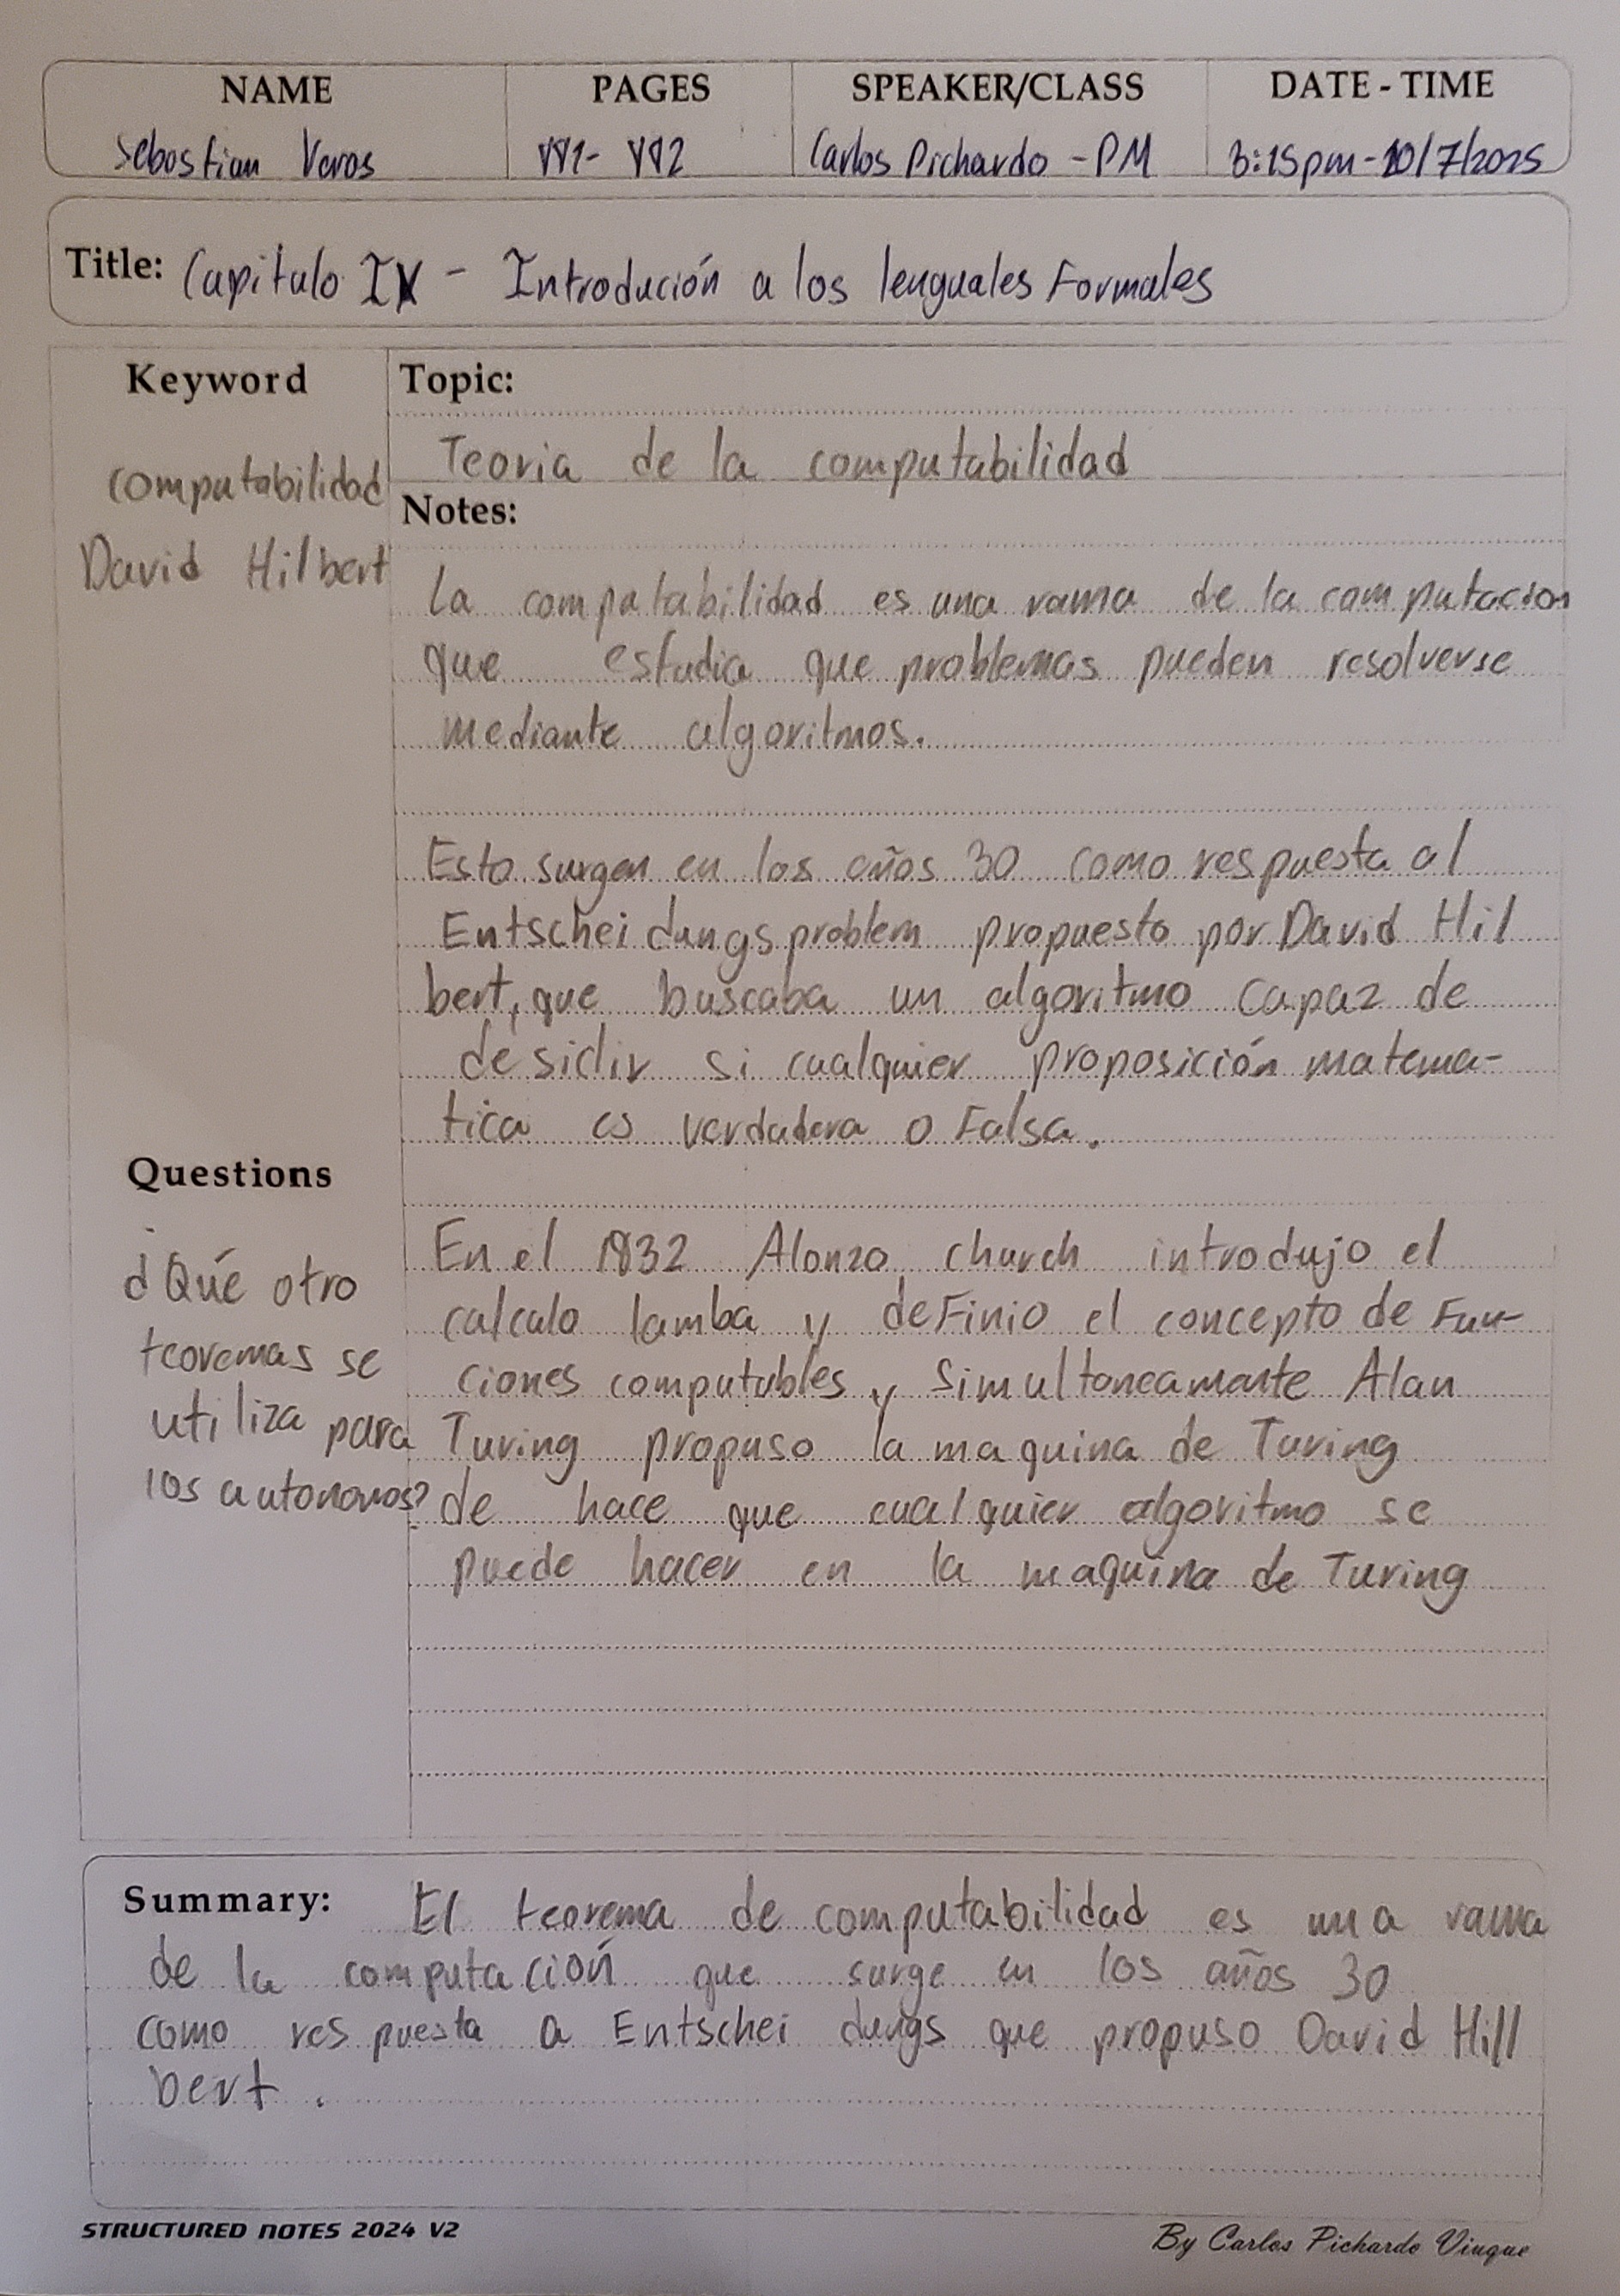 NAME PAGES SPEAKER/CLASS DATE - TIME
Sebastian Veras Carlos Pichardo - PM 3:15pm - 10/7/2025
Title: Capitulo IX - Introdución a los lenguales Formales
Keyword
computabilidad
David Hilbert
Topic:
Teoria de la computabilidad
Notes:
La computabilidad es una rama de la computacion
que estudia que problemas pueden resolverse
mediante algoritmos.
Esto surgen en los años 30 como respuesta al
Entscheidungsproblem propuesto por David Hil
bert, que buscaba un algoritmo capaz de
desidir si cualquier proposición matema-
tica es verdadera o Falsa.
En el 1832 Alonzo church introdujo el
calculo lamba y deFinio el concepto de Fun-
ciones computables y Simultoneamante Alan
Turing propuso la maquina de Turing
de hace que cualquier algoritmo se
puede hacer en la maquina de Turing
Questions
¿Qué otro
teoremas se
utiliza para
los autonomos?
Summary: El teorema de computabilidad es una rama
de la computación que surge en los años 30
como respuesta a Entschei dungs que propuso David Hill
bert.
STRUCTURED NOTES 2024 V2
By Carlos Pichardo Viuque